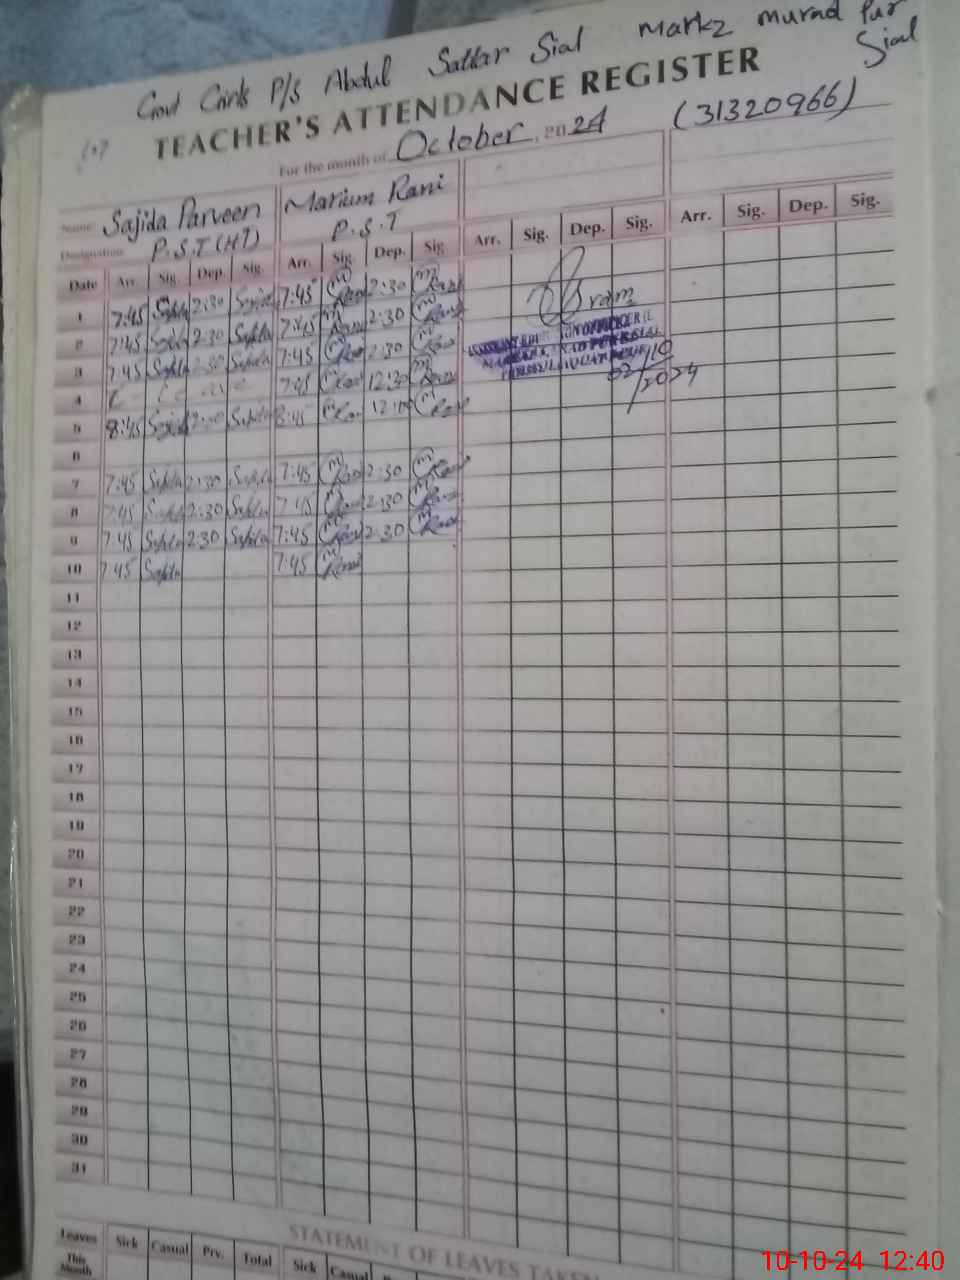 Govt Girls P/S Abdul Sattar Sial Markz Murad Pur Sial
TEACHER'S ATTENDANCE REGISTER
For the month of October 2024 (31320966)
Name Sajida Parveen Marium Rani
Designation P.S.T (HT) P.S.T
Date Arr. Sig. Dep. Sig. Arr. Sig. Dep. Sig. Arr. Sig. Dep. Sig. Arr. Sig. Dep. Sig.
1 7:45 Sajida 2:30 Sajida 7:45 M Rani 2:30 M Rani
2 7:45 Sajida 2:30 Sajida 7:45 M Rani 2:30 M Rani
3 7:45 Sajida 2:30 Sajida 7:45 M Rani 2:30 M Rani
4 C - Leave 7:45 M Rani 12:30 M Rani
5 8:45 Sajida Sajida 8:45 M Rani 12:00 M Rani
02/10/2024
6
7 7:45 Sajida 2:30 Sajida 7:45 M Rani 2:30 M Rani
8 7:45 Sajida 2:30 Sajida 7:45 M Rani 2:30 M Rani
9 7:45 Sajida 2:30 Sajida 7:45 M Rani 2:30 M Rani
10 7:45 Sajida 7:45 M Rani
11
12
13
14
15
16
17
18
19
20
21
22
23
24
25
26
27
28
29
30
31
STATEMENT OF LEAVES TAKEN
Leaves Sick Casual Prv. Total Sick Casual
This Month
10-10-24 12:40